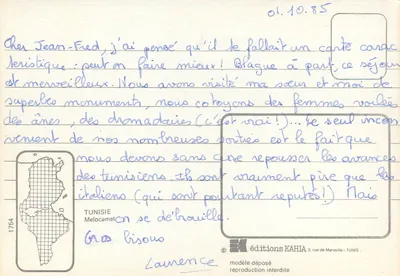 01.10.85
Cher Jean-Fred, j'ai pensé qu'il te fallait un carte carac
téristique : peut on faire mieux! Blague à part, ce séjour
est merveilleux. Nous avons visité ma sœur et moi de
superbes monuments, nous cotoyons des femmes voilées
des ânes, des dromadaires (c'est vrai!)... Le seul incon
vénient de nos nombreuses sorties est le fait que
nous devons sans cesse repousser les avances
des tunisiens. Ils sont vraiment pire que les
italiens (qui sont pourtant reputés!) Mais
on se débrouille.
Gros bisous
Laurence
1754
TUNISIE
éditions KAHIA
modèle déposé
reproduction interdite